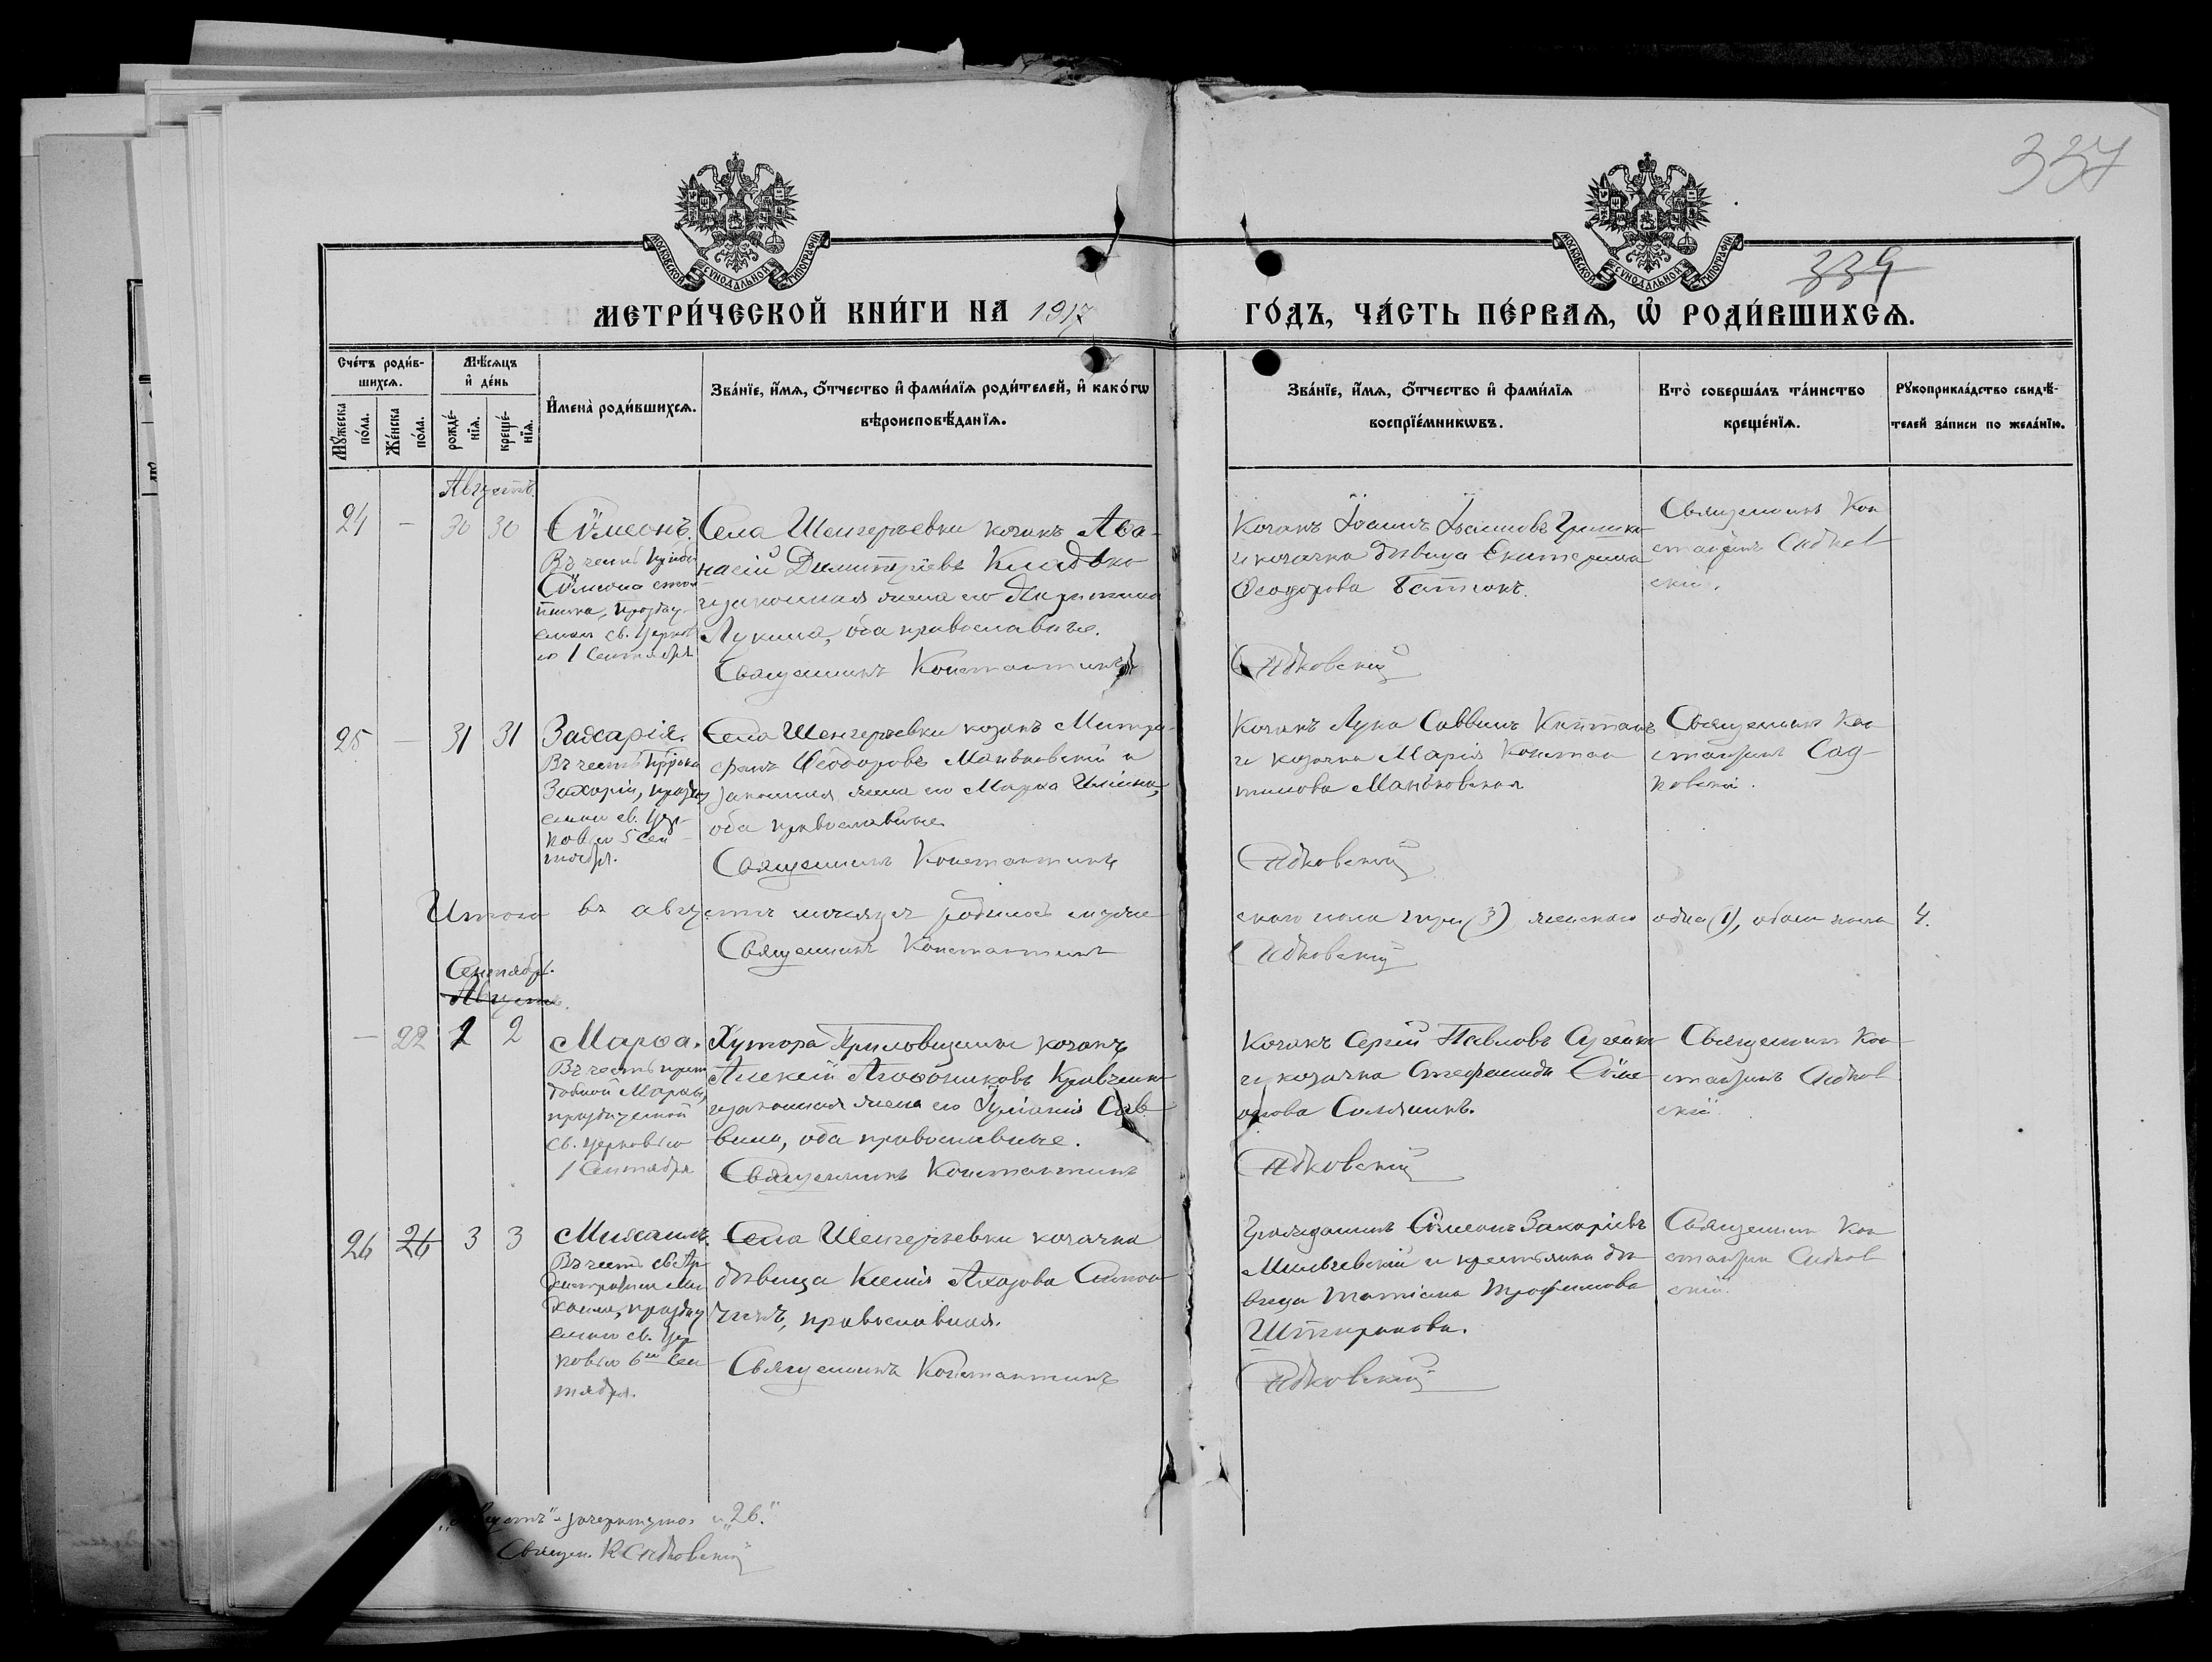 337
339
МОСКОВСКОЙ СѴНОДАЛЬНОЙ ТИПОГРАФІИ
МОСКОВСКОЙ СѴНОДАЛЬНОЙ ТИПОГРАФІИ
МЕТРИ́ЧЕСКОЙ КНИ́ГИ НА 1917
ГО́ДЪ, ЧА́СТЬ ПЕ́РВАѦ, Ѡ҆ РОДИ́ВШИХСѦ.
Сче́тъ роди́в-
шихсѧ.
Мꙋ́жеска
по́ла.
Же́нска
по́ла.
Мѣ́сѧцъ
и҆ де́нь
рожде́-
нїѧ.
креще́-
нїѧ.
И҆мена̀ роди́вшихсѧ.
Зва́нїе, и҆́мѧ, ѻ҆́тчество и҆ фами́лїѧ роди́телей, и҆ како́гѡ
вѣроисповѣ́данїѧ.
Зва́нїе, и҆́мѧ, ѻ҆́тчество и҆ фами́лїѧ
воспрїе́мникѡвъ.
Кто̀ соверша́лъ та́инство
креще́нїѧ.
Рꙋкоприкла́дство свидѣ́-
телей за́писи по жела́нїю.
Августъ.
24 - 30 30
Сѵмеонъ.
Въ честь
Сѵмеона столп
ника, праздну
емаго св. Церков
ію 1 Сентября
Села Шенгерѣевки козакъ Аѳа-
насій Димитріевъ
и законная жена его
Лукина, оба православные.
Священникъ Константинъ
Козакъ Іоаннъ Іоанновъ Гришко
и козачка дѣвица Екатерина
Ѳеодорова
Садковскій
Священникъ Кон
стантинъ Садков
скій.
25 - 31 31
Захарія.
Въ честь Прорка
Захаріи, праздну
емаго св. Цер-
ковію 5 Сен
тября.
Села Шенгерѣевки козакъ Митро-
фанъ Ѳеодоровъ Маньковскій и
законная жена его Марѳа
оба православные
Священникъ Константинъ
Козакъ Лука Саввинъ
и козачка Марія Констан
тинова Маньковская
Садковскій
Священникъ Кон
стантинъ Сад-
ковскій.
Итого въ августѣ мѣсяцѣ родилось муже
скаго пола три (3), женскаго одна (1), обоего пола 4.
Священникъ Константинъ
Садковскій
Сентябрь.
Августъ.
- 22 1 2
Марѳа.
Въ честь препо
добной Марѳы,
празднуемой
св. Церковію
1 Сентября
Хутора козакъ
Алексій Кривченко
и законная жена его Іуліанія Сав
вина, оба православные.
Священникъ Константинъ
Козакъ Сергій Павловъ
и козачка Стефанида Сѵме
онова
Садковскій
Священникъ Кон
стантинъ Садков
скій
26 26 3 3
Михаилъ.
Въ честь св. Ар
хистратига Ми
хаила, праздну
емаго св. Цер
ковію 6го Сен
тября.
Села Шенгерѣевки козачка
дѣвица Ксенія
православная.
Священникъ Константинъ
Гражданинъ Сѵмеонъ Захаріевъ
Мильчевскій и крестьянка дѣ
вица Татіана Трофимова
Садковскій
Священникъ Кон
стантинъ Садков
скій.
"Августъ" - зачеркнуто и "26."
Священ. К Садковскій